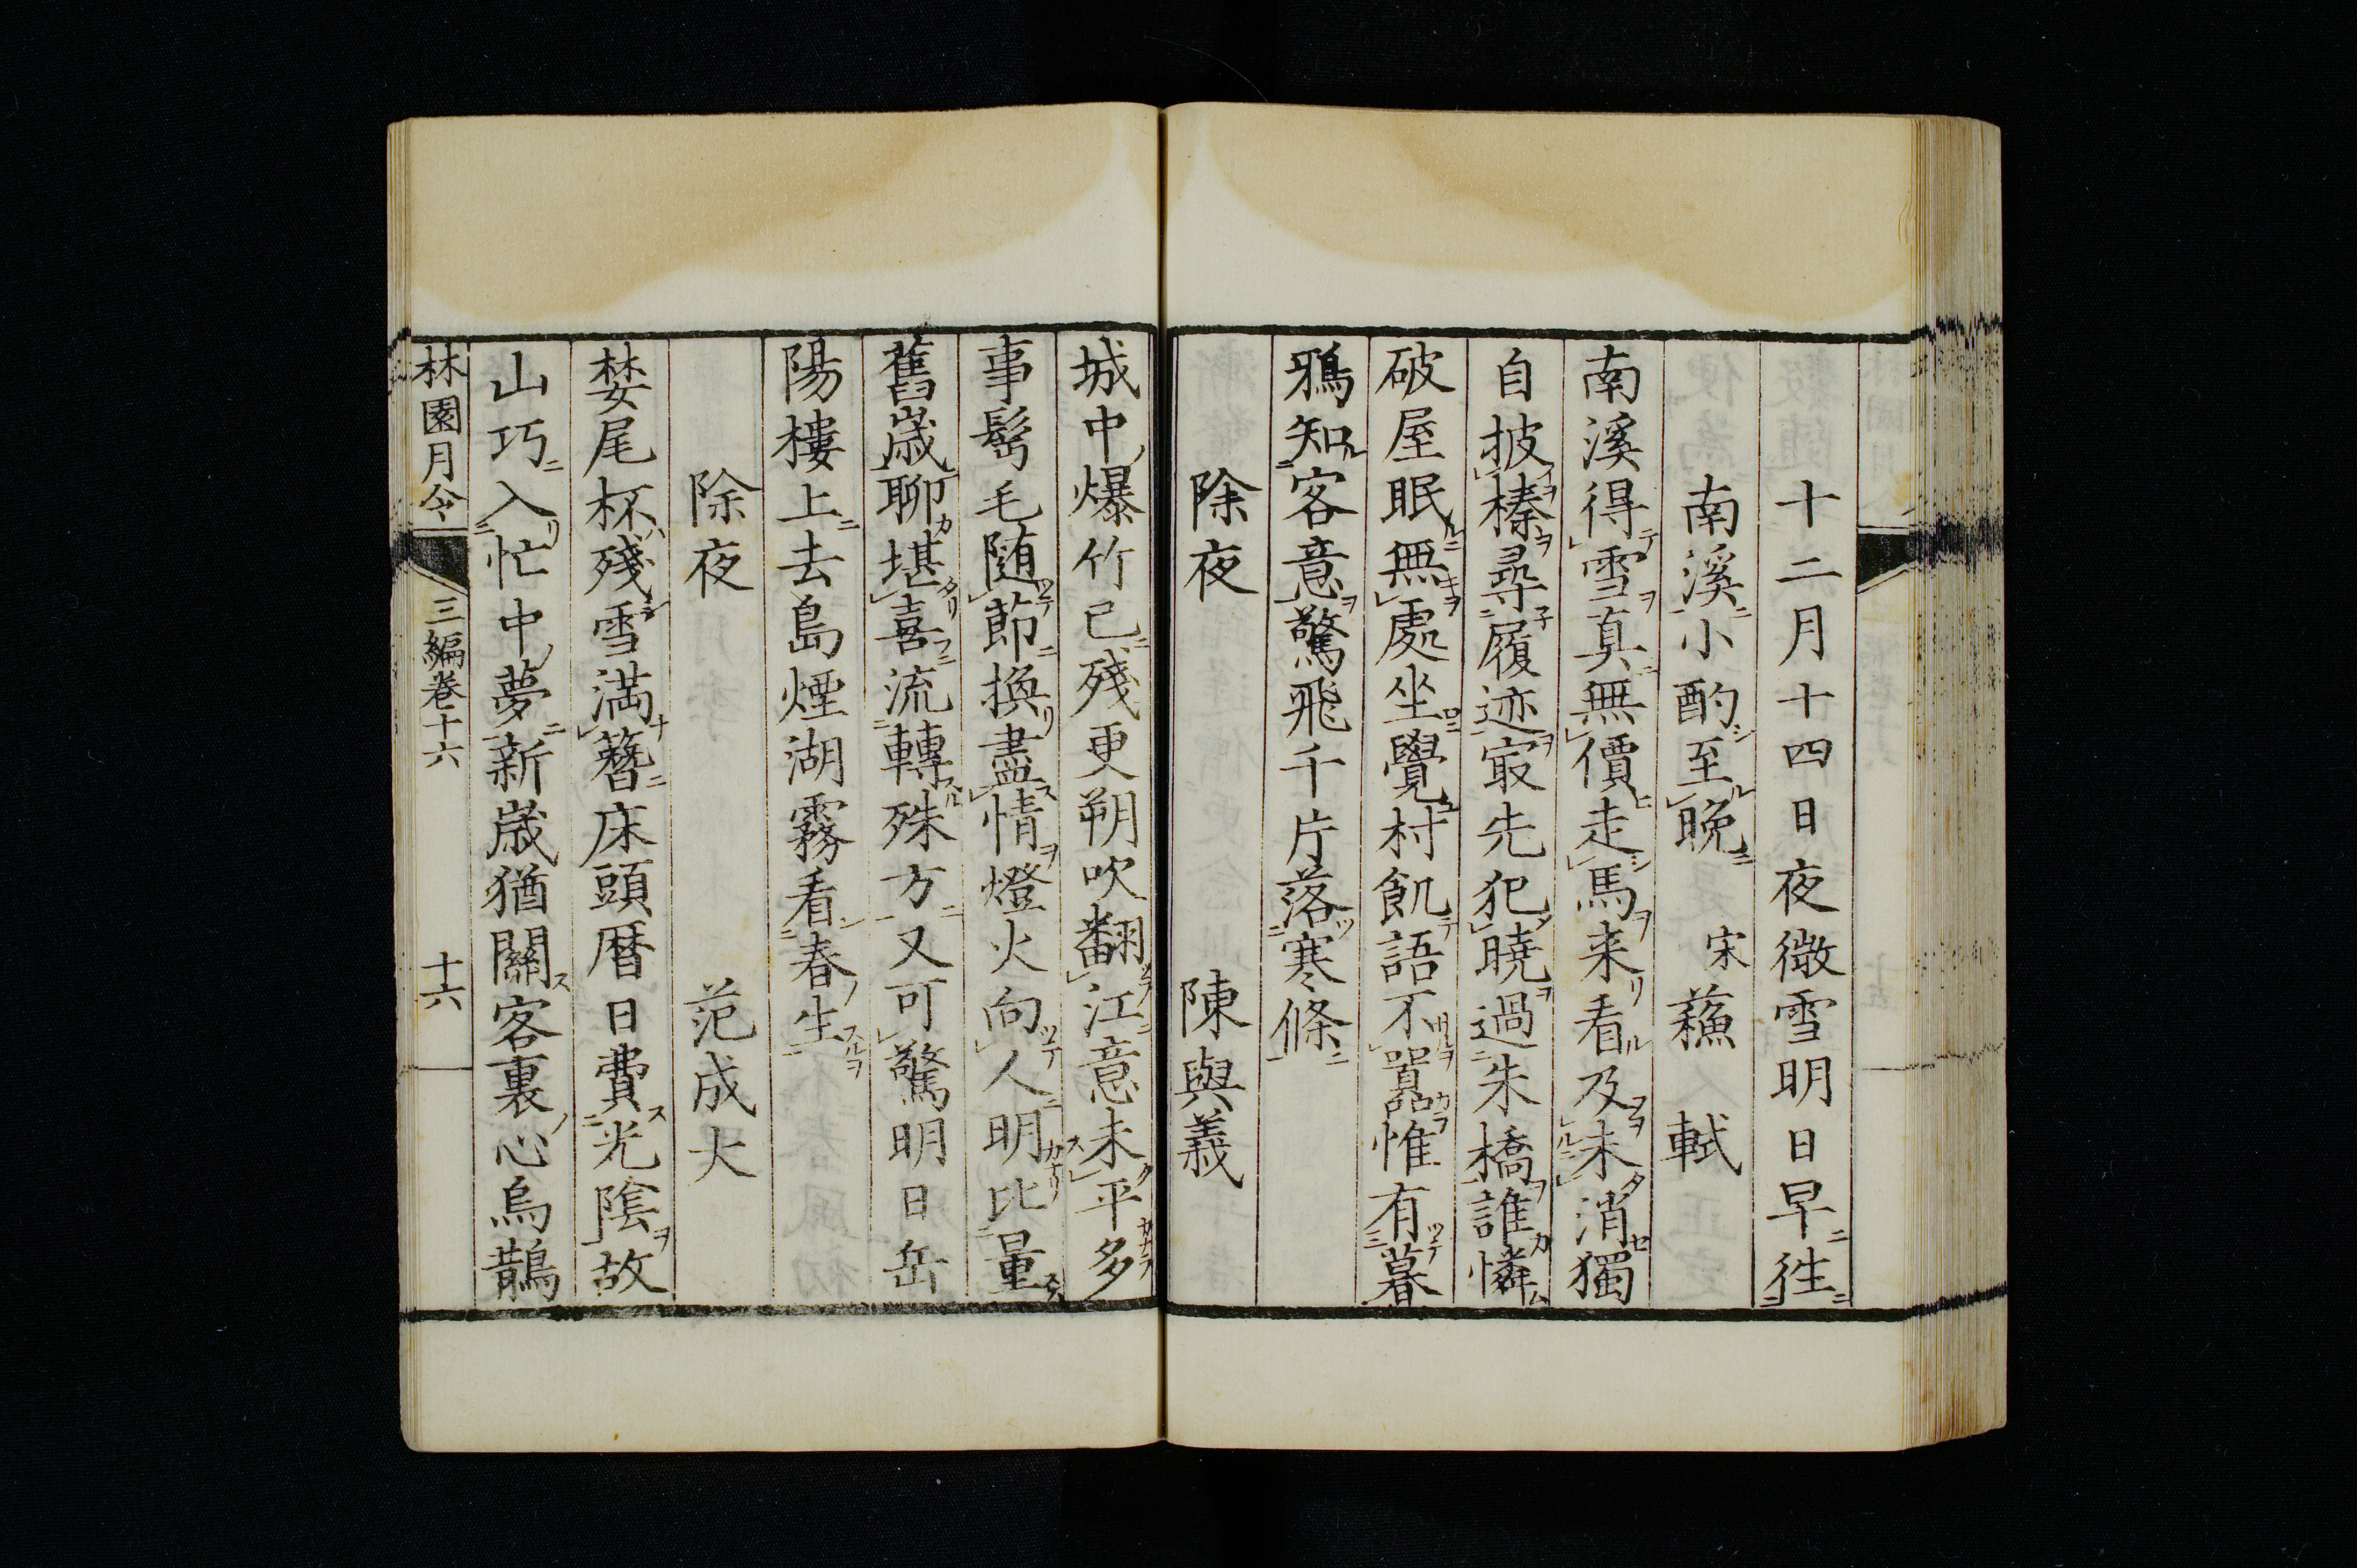 十二月十四日夜微雪明日早往
南溪小酌至晩　宋　蘓　軾
南溪得雪真無價走馬来看及未消獨
自披榛尋履迹㝡先犯曉過朱橋誰憐
破屋眠無處坐覺村飢語不嚣惟有暮
鴉知客意驚飛千片落寒條
除夜　陳與義
城中爆竹已殘更朔吹翻江意未平多
事鬂毛随莭換盡情燈火向人明比量
舊歳聊堪喜流轉殊方又可驚明日岳
陽樓上去島煙湖霧看春生
除夜　范成大
婪尾杯殘雪満簪床頭暦日費光陰故
山巧入忙中夢新歳猶關客裏心烏鵲
林園月令　三編卷十六　十六